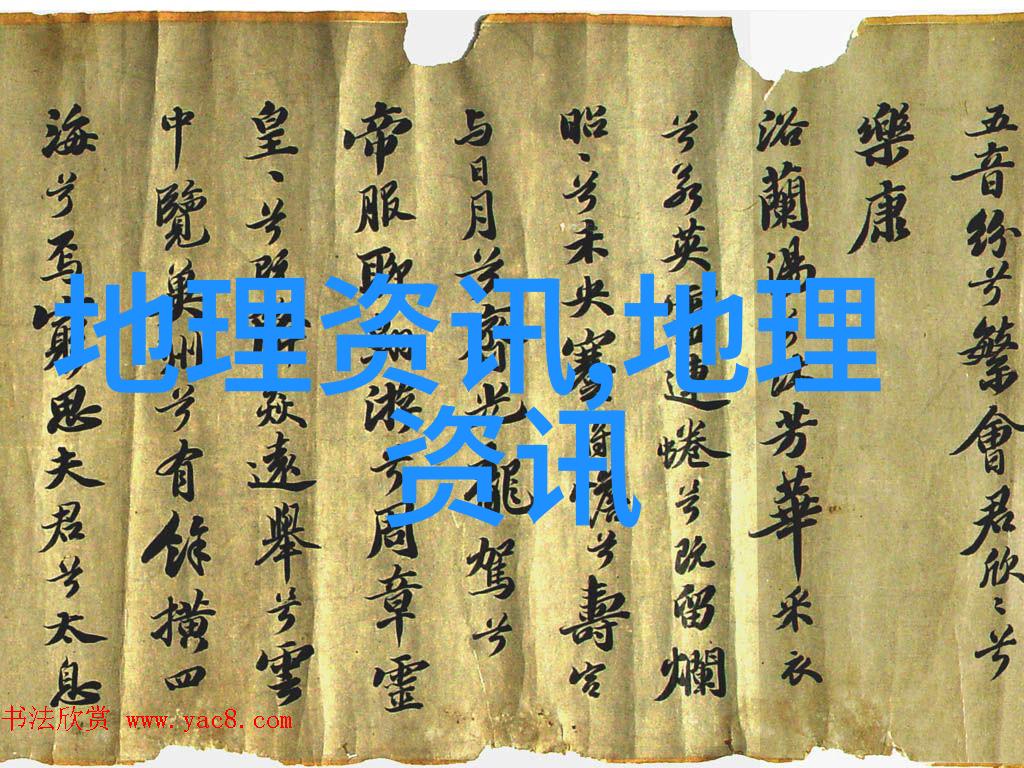 五音紛兮繁會君欣〻兮
樂康
浴蘭湯兮沐芳華采衣
兮若英靈連蜷兮既留爛
昭〻兮未央蹇將憺兮壽宫
与日月兮齊光龍駕兮
帝服聊翱游兮周章靈
皇〻兮既降猋遠舉兮雲
中覽冀州兮有餘横四
海兮焉窮思夫君兮太息
地理资讯,地理
资讯
书法欣赏 www.yac8.com